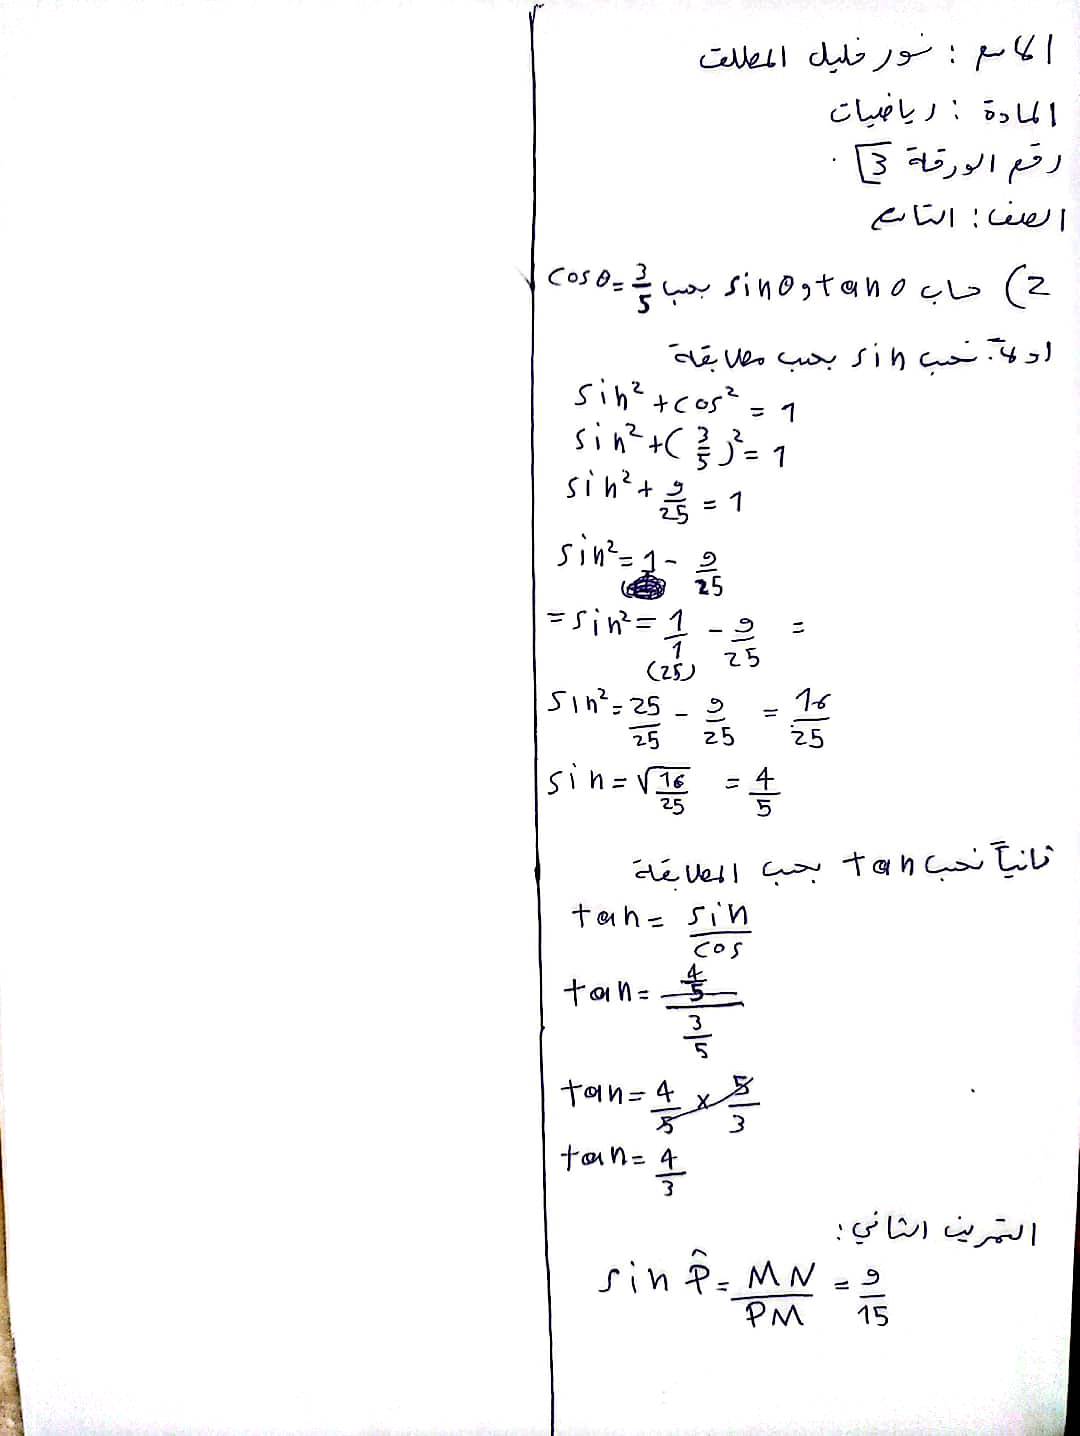 الاسم : نور خليل المطلق
المادة : رياضيات
رقم الورقة 3
الصف : التاسع
2) حساب sinθ و tanθ بحسب cosθ = 3/5
اولاً: نحسب sin بحسب مطابقة
sin² + cos² = 1
sin² + (3/5)² = 1
sin² + 9/25 = 1
sin² = 1 - 9/25
= sin² = 1/1 - 9/25 =
(25)
sin² = 25/25 - 9/25 = 16/25
sin = √16/25 = 4/5
ثانياً نحسب tan بحسب المطابقة
tan = sin/cos
tan = 4/5 / 3/5
tan = 4/5 × 5/3
tan = 4/3
التمرين الثاني :
sin P̂ = MN/PM = 9/15